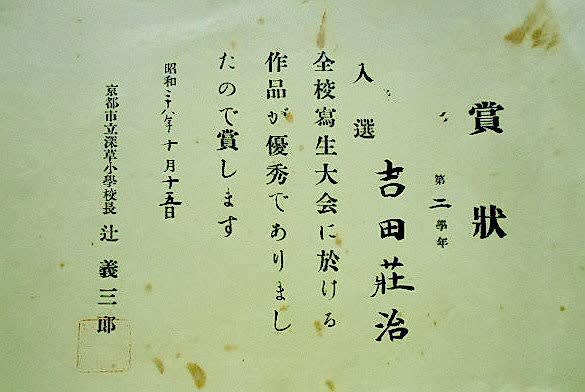 賞狀
第二學年
吉田莊治
入選
全校寫生大会に於ける
作品が優秀でありまし
たので賞します
昭和二十八年十月十五日
京都市立深草小學校長 辻義三郎